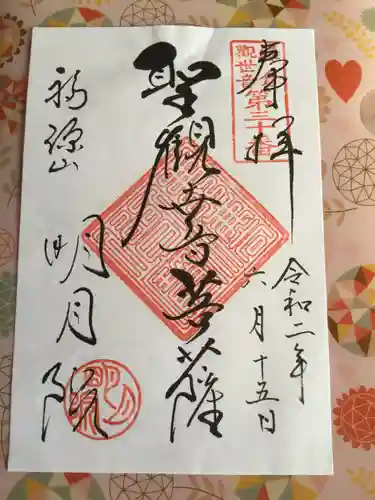 奉拝
觀世音
第三十番
令和二年
六月十五日
聖觀世音菩薩
福源山
明月院